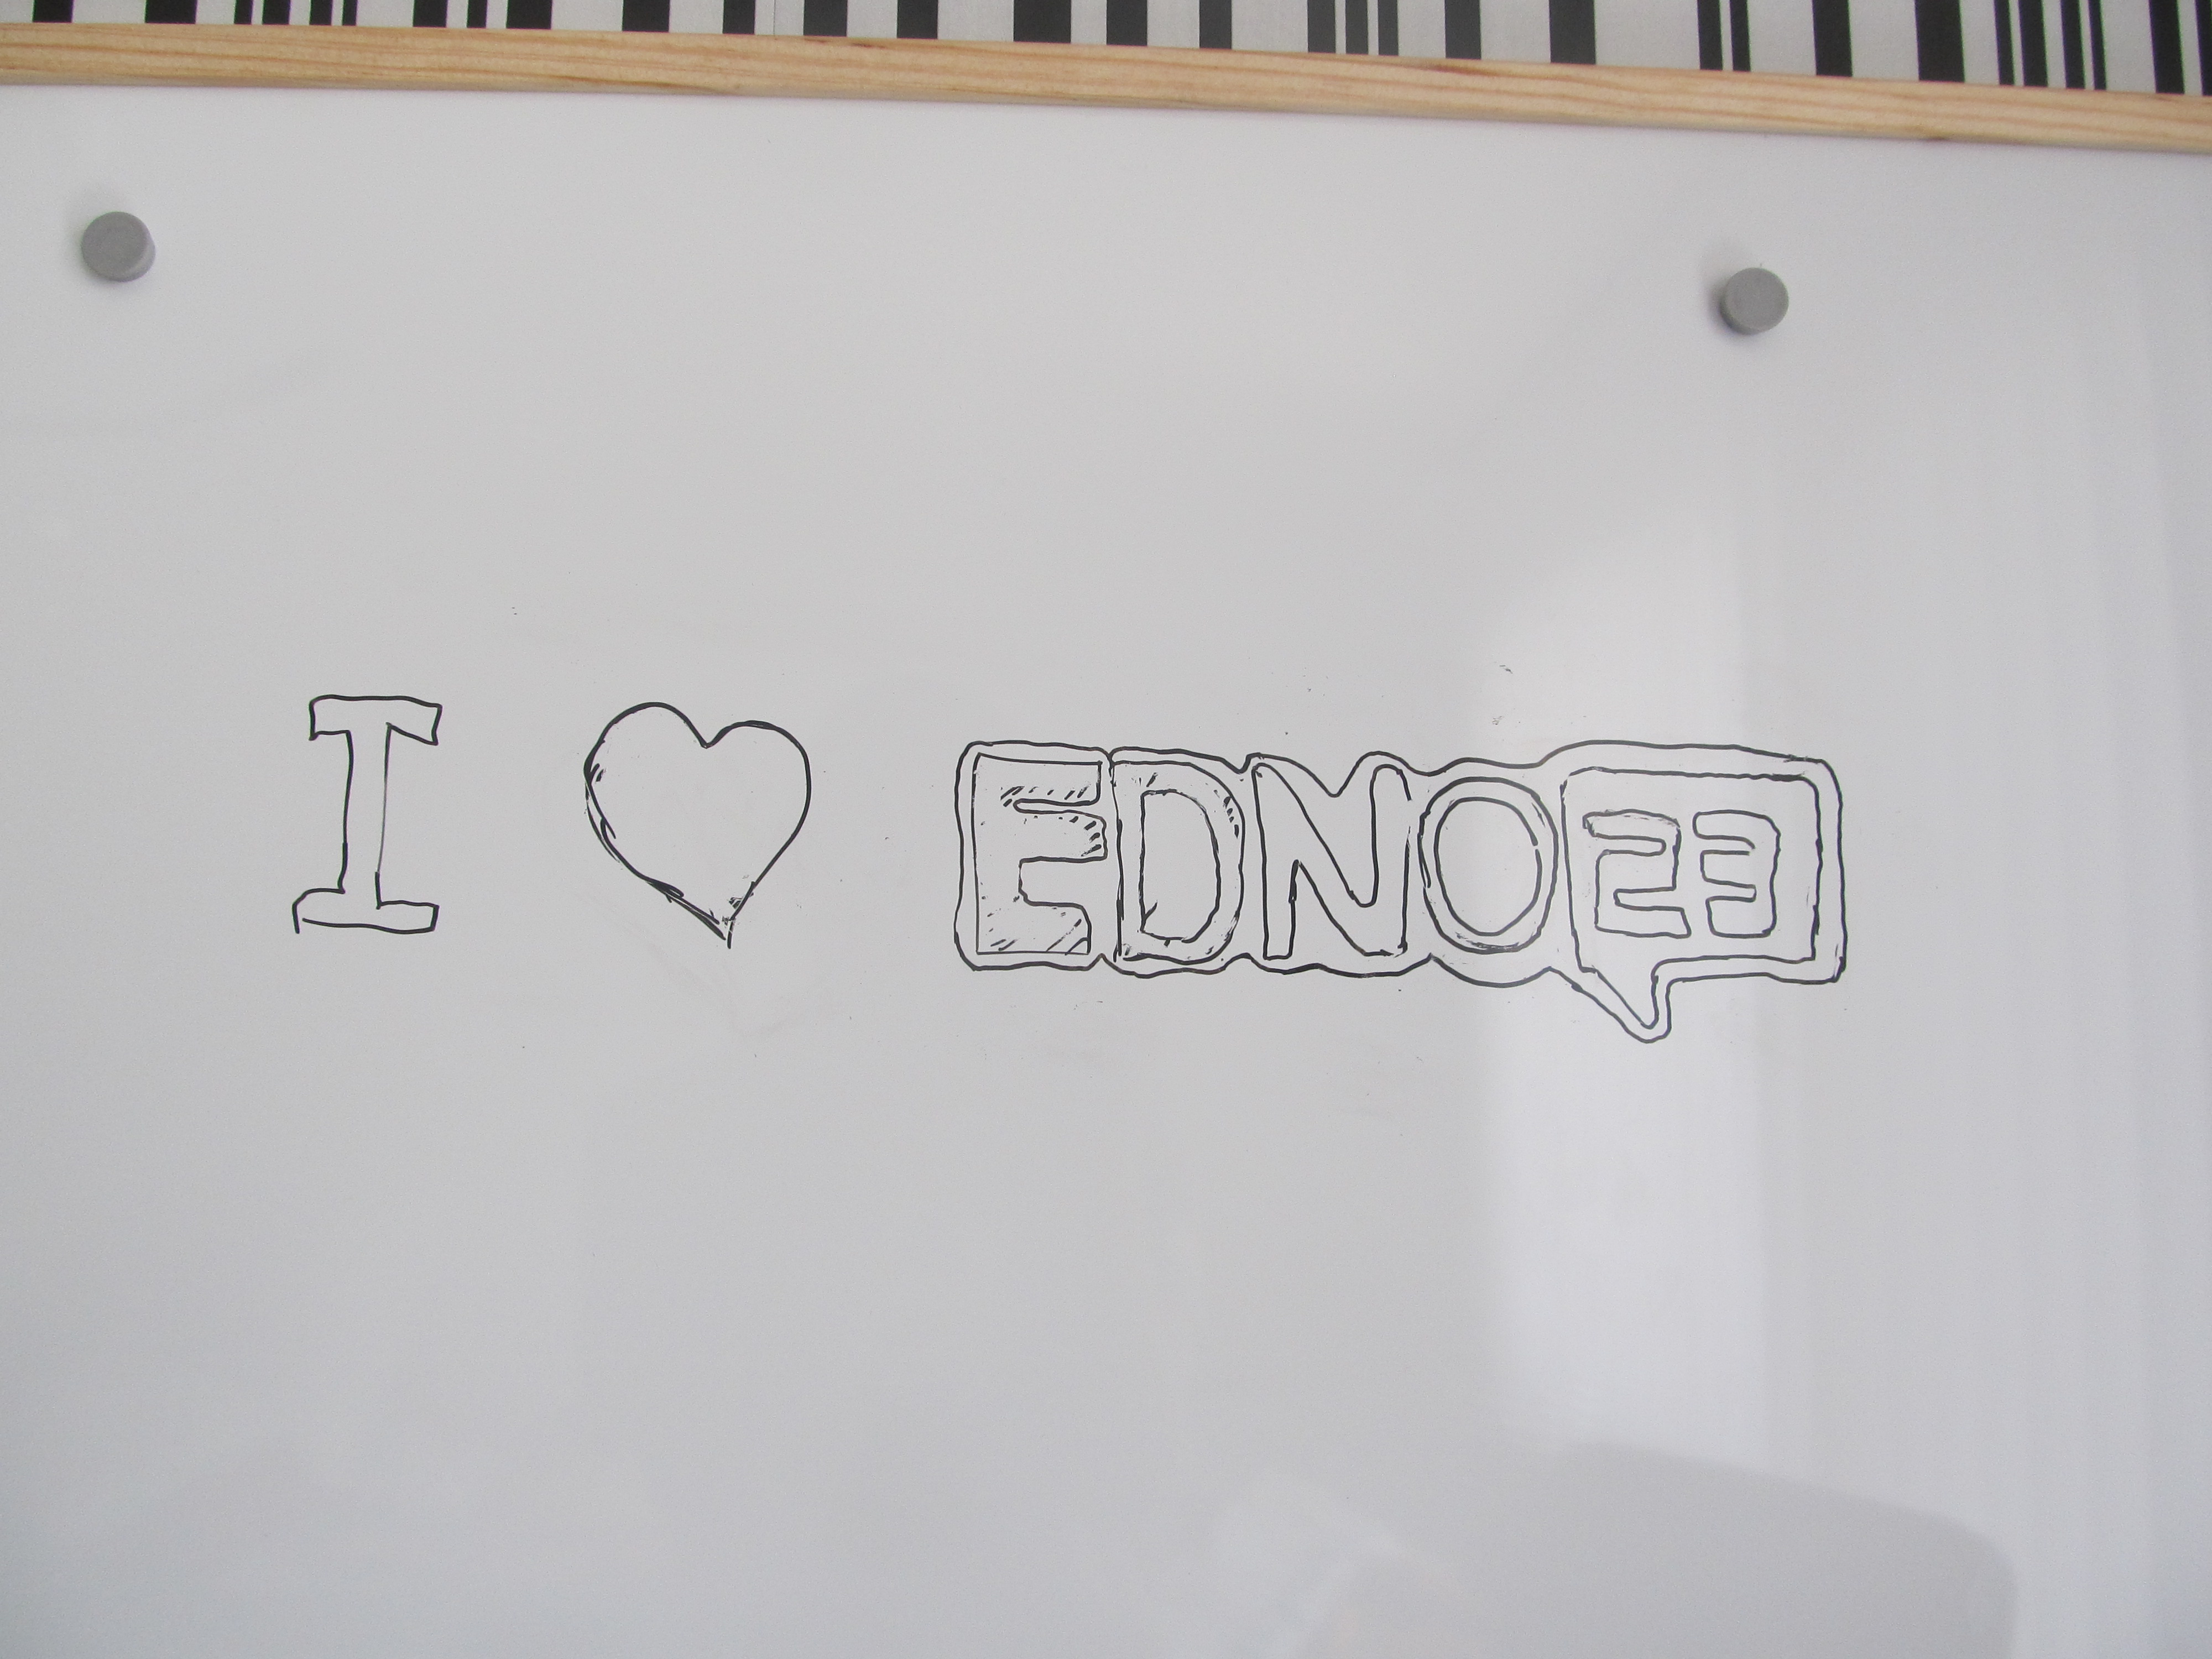 I ♥ EDNO23